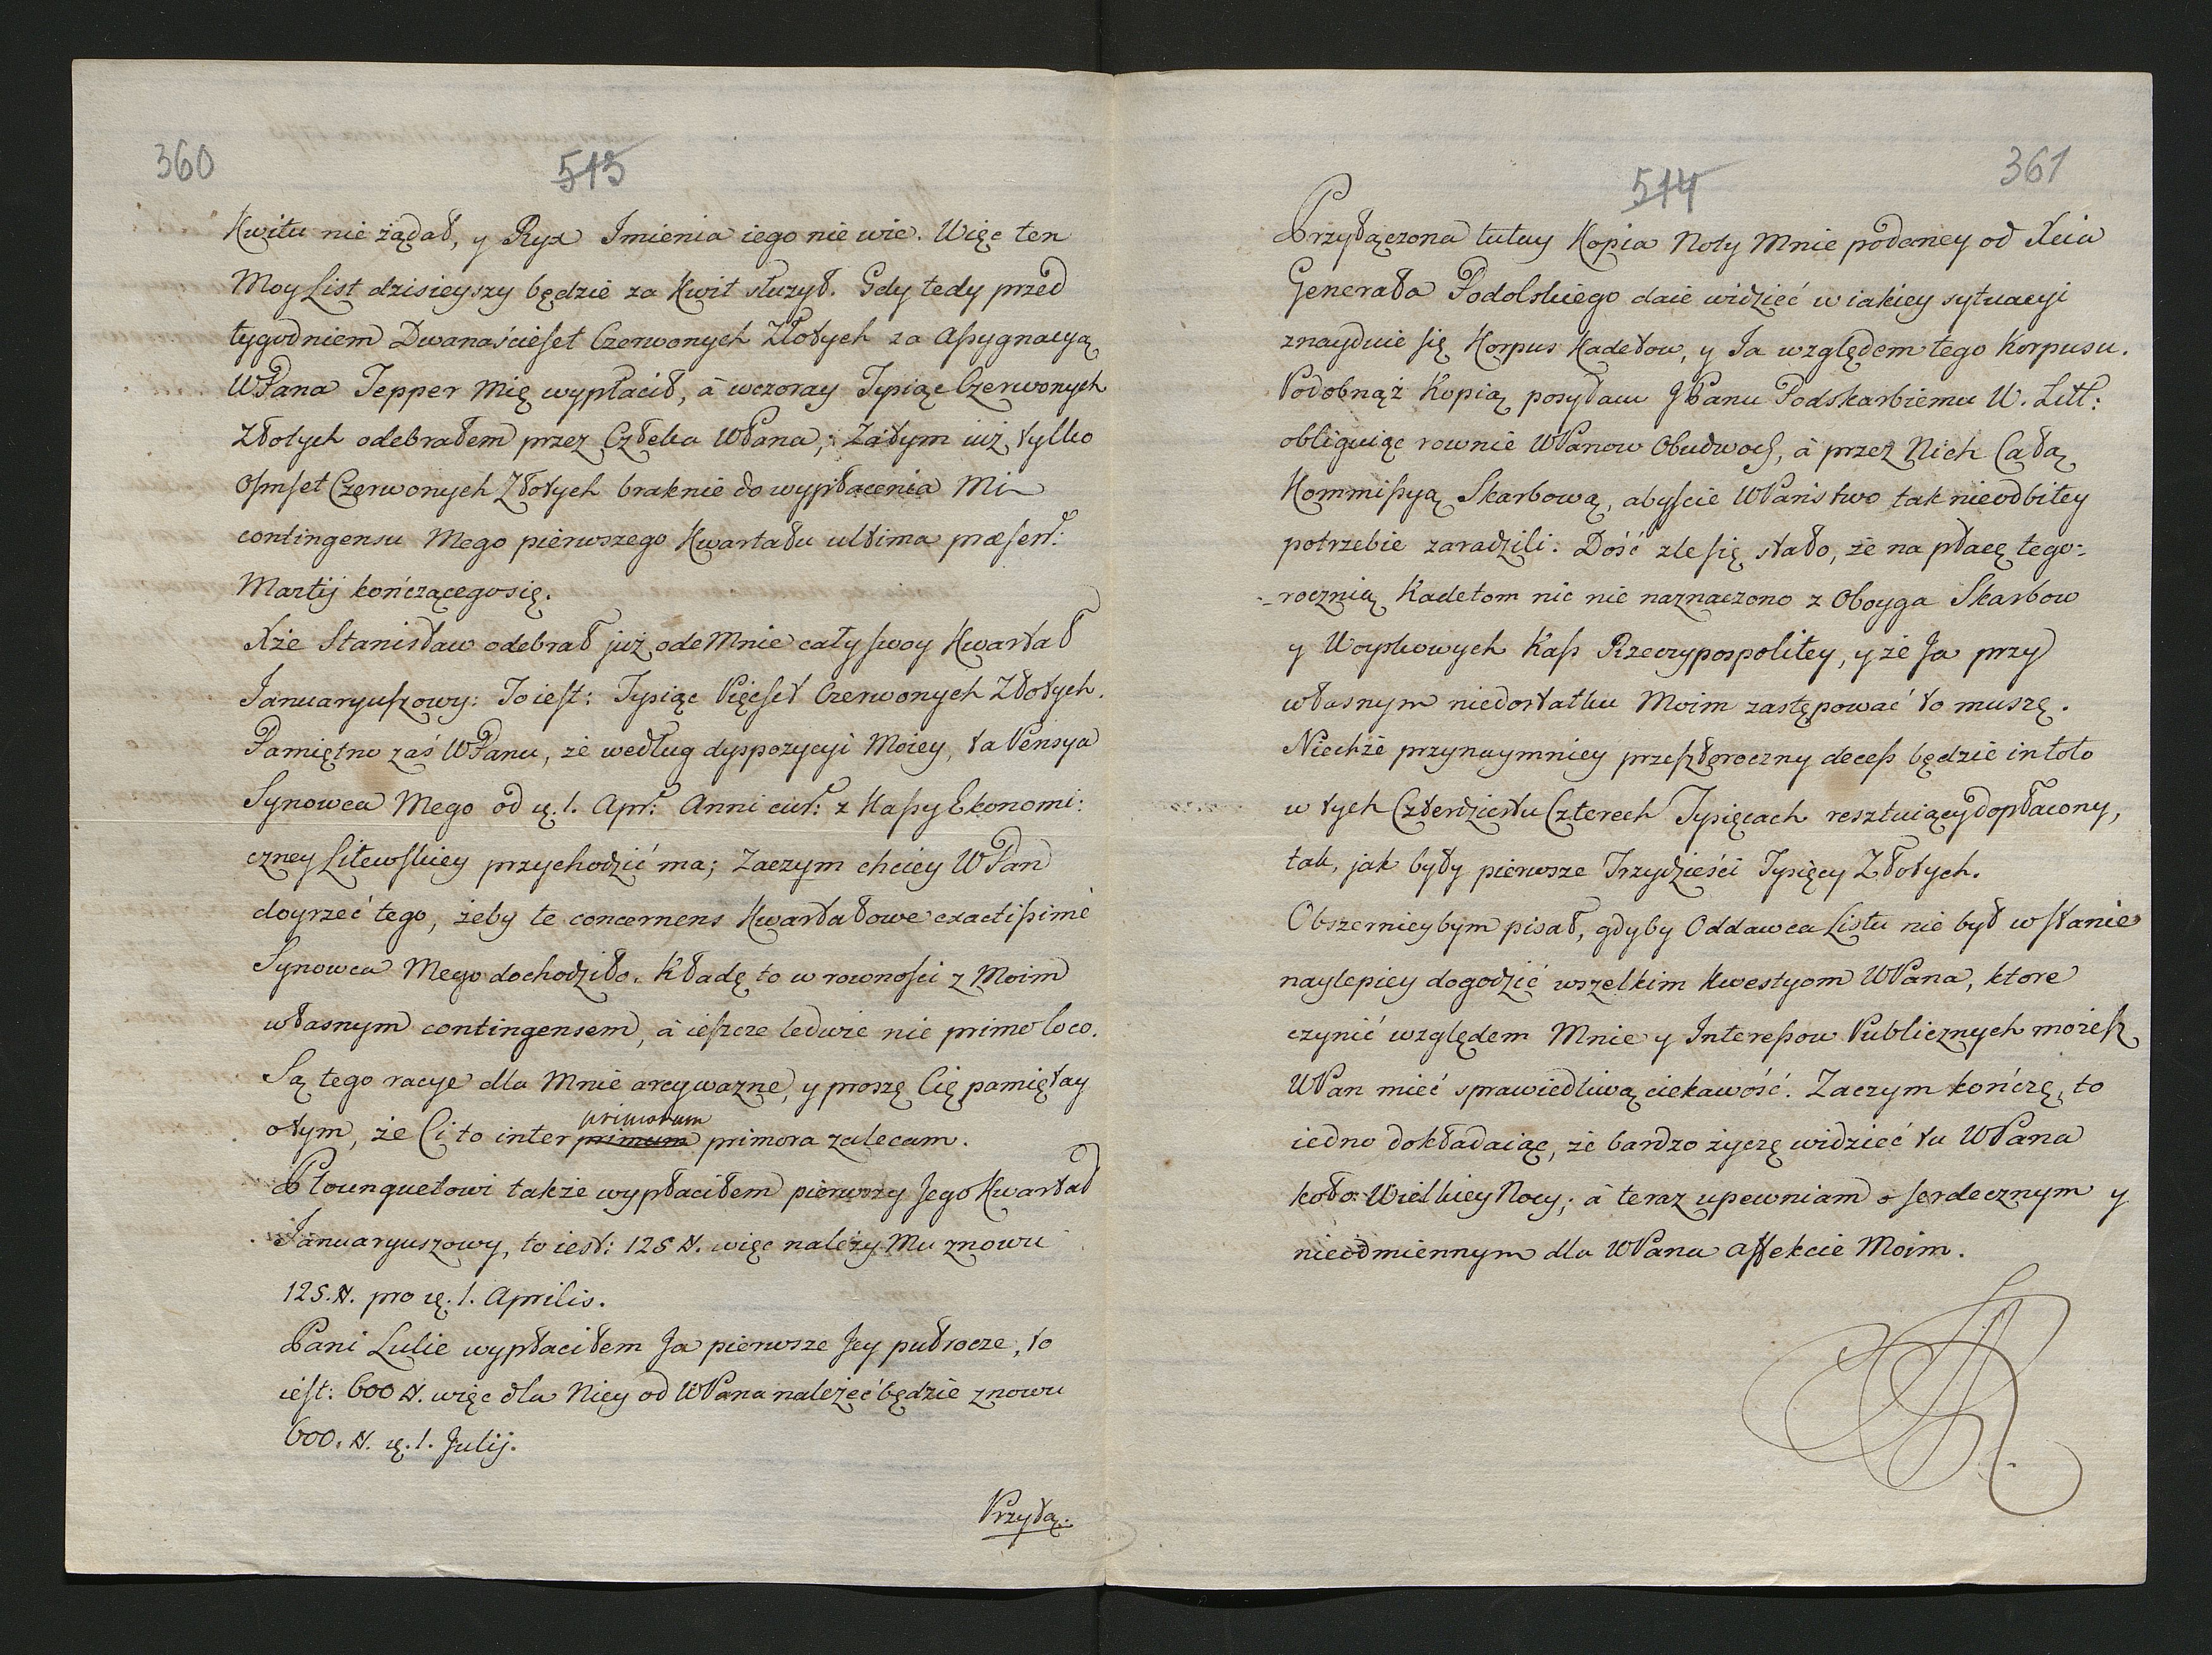 360
513
Kwitu nie żądał, y Ryx Imienia iego nie wie. Więc ten
Moy List dzisieyszy będzie za Kwit służył. Gdy tedy przed
tygodniem Dwanaścieset Czerwonych Złotych za Assygnacyą
WPana Tepper Mię wypłacił, à wczoray Tysiąc Czerwonych
Złotych odebrałem przez Człeka WPana; Zatym iuż tylko
osmset Czerwonych Złotych braknie do wypłacenia Mi
contingensu Mego pierwszego Kwartału ultima præsent:
Martij kończącego się.
Xże Stanisław odebrał już odemnie cały swoy Kwartał
Januaryuszowy: To iest: Tysiąc Pięcset Czerwonych Złotych.
Pamiętno zaś WPanu, że według dyspozycyi Moiey, ta Pensya
Synowca Mego od 1. Apr: Anni cur: z Kassy Ekonomi:
czney Litewskiey przychodzić ma; Zaczym chciey WPan
doyrzeć tego, żeby te concernens Kwartałowe exactissimè
Synowca Mego dochodziło. Kładę to w rowności z Moim
własnym contingensem, à ieszcze ledwie nie primo loco.
Są tego racye dla Mnie arcyważne, y proszę Cię pamiętay
o tym, że Ci to inter primum primorum primora zalecam.
Plounquetowi także wypłaciłem pierwszy Jego Kwartał
Januaryuszowy, to iest: 125 #. więc należy Mu znowu
125. #. pro 1. Aprilis.
Pani Lulie wypłaciłem Ja pierwsze Jey pułrocze, to
iest: 600 #. więc dla Niey od WPana należeć będzie znowu
600. #. 1. Julij.
Przyłą:
514
361
Przyłączona tutay Kopia Noty Mnie podaney od Xcia
Generała Podolskiego daie widzieć w iakiey sytuacyi
znayduie się Korpus Kadetow, y Ja względem tego Korpusu.
Podobnąż Kopią posyłam JPanu Podskarbiemu W. Litt:
obliguiąc rownie WPanow Obudwoch, à przez Nich Całą
Kommissyą Skarbową, abyscie WPaństwo tak nieodbitey
potrzebie zaradzili. Dość zle się stało, że na płacę tego-
-rocznią Kadetom nic nie naznaczono z Oboyga Skarbow
y Woyskowych Kass Rzeczypospolitey, y że Ja przy
własnym niedostatku Moim zastępować to muszę.
Niechże przynaymniey przeszłoroczny decess będzie in toto
w tych Czterdziestu Czterech Tysięcach resztuiący dopłacony,
tak, jak były pierwsze Trzydzieści Tysięcy Złotych.
Obszerniey bym pisał, gdyby Oddawca Listu nie był w stanie
naylepiey dogodzić wszelkim kwestyom WPana, ktore
czynić względem Mnie y Interessow Publicznych możesz
WPan mieć sprawiedliwą ciekawość. Zaczym kończę, to
iedno dokładaiąc, że bardzo życzę widzieć tu WPana
koło Wielkiey Nocy; à teraz upewniam o serdecznym y
nieodmiennym dla WPana affekcie Moim.
SAR